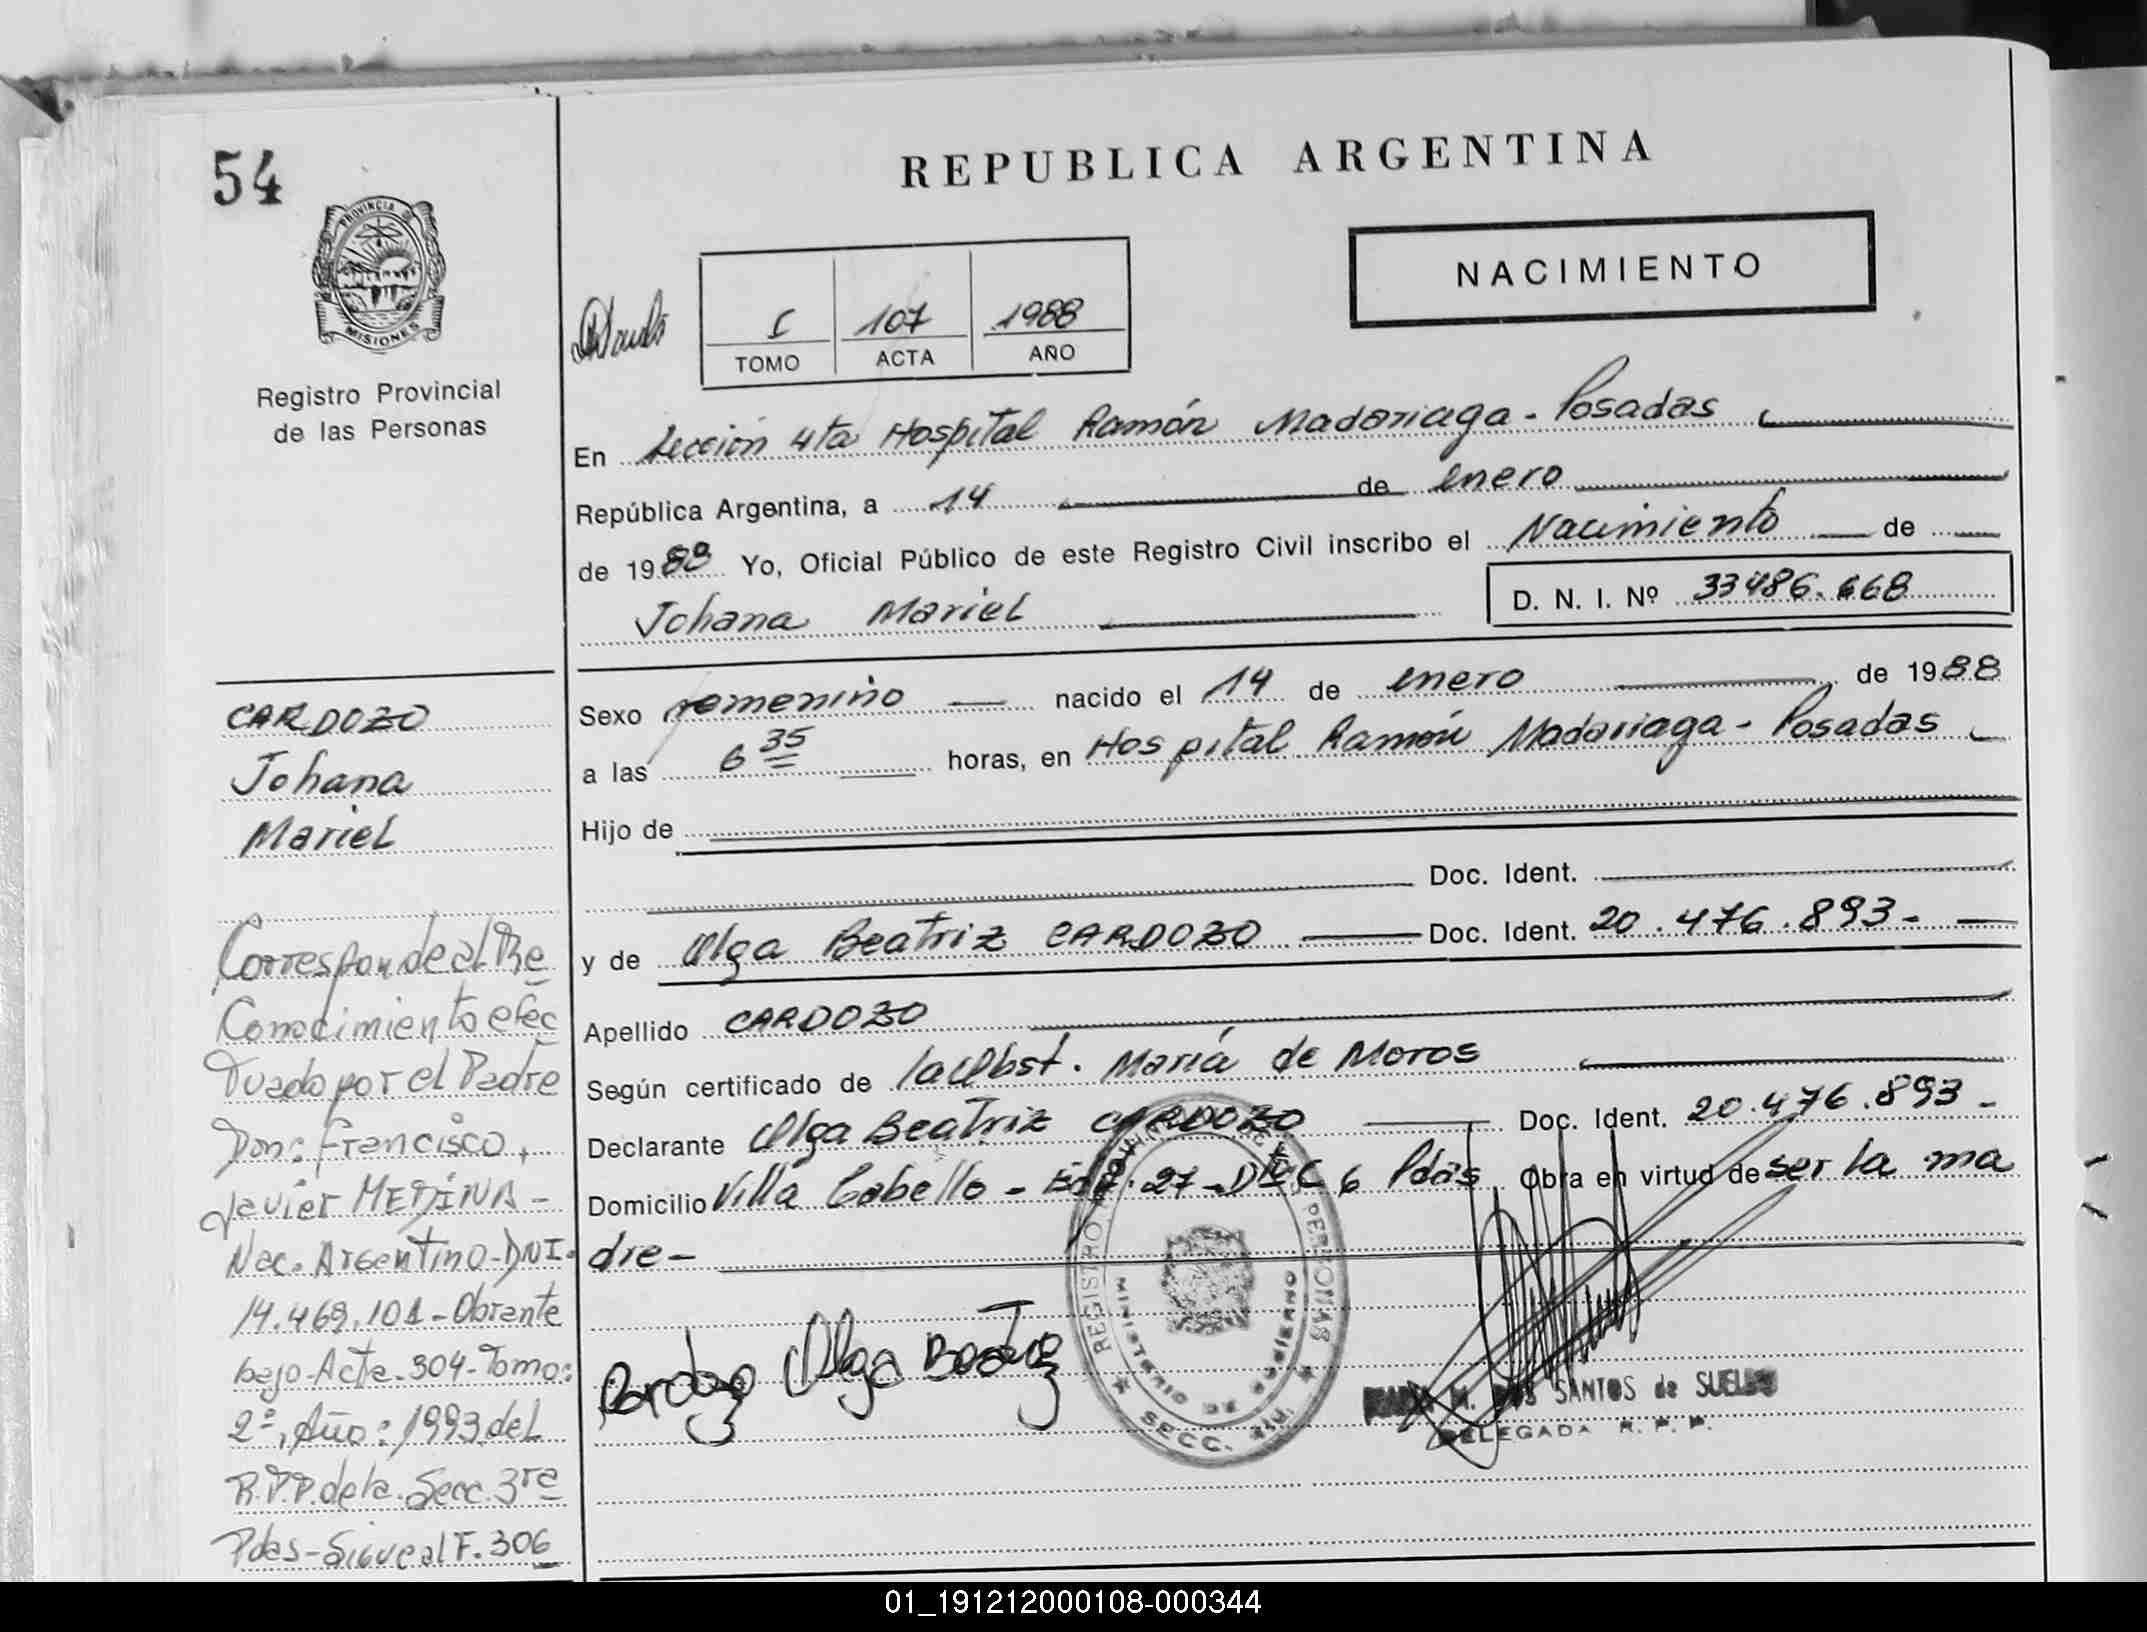 54
REPUBLICA ARGENTINA
PROVINCIA DE
MISIONES
NACIMIENTO
I 107 1988
TOMO ACTA AÑO
Registro Provincial
de las Personas
En Sección 4ta Hospital Ramón Madariaga - Posadas
República Argentina, a 14 de enero
de 1988 Yo, Oficial Público de este Registro Civil inscribo el Nacimiento de
Johana Mariel D. N. I. Nº 33486.668
CARDOZO
Johana
Mariel
Sexo femenino nacido el 14 de enero de 1988
a las 6 35 horas, en Hospital Ramón Madariaga - Posadas
Hijo de
Doc. Ident.
y de Olga Beatriz CARDOZO Doc. Ident. 20.476.893-
Apellido CARDOZO
Según certificado de la Obst. María de Moros
Declarante Olga Beatriz CARDOZO Doc. Ident. 20.476.893-
Domicilio Villa Cabello - Edf. 27 - Dto C 6 Pdas Obra en virtud de ser la ma
dre-
Corresponde al Re
Conocimiento efec
Tuado por el Padre
Don: Francisco,
Javier MEDINA-
Nac. Argentino-DNI.
14.469.101-Obrante
bajo-Acta-304-Tomo:
2º, Año: 1993 del
R.P.P. de la. Secc. 3ra
Pdas-Sigue al F. 306
Cardozo Olga Beatriz
REGISTRO PERSONAS
MINISTERIO DE GOBIERNO
SECC.
M. DOS SANTOS de SUELDO
DELEGADA R. P. P.
01_191212000108-000344